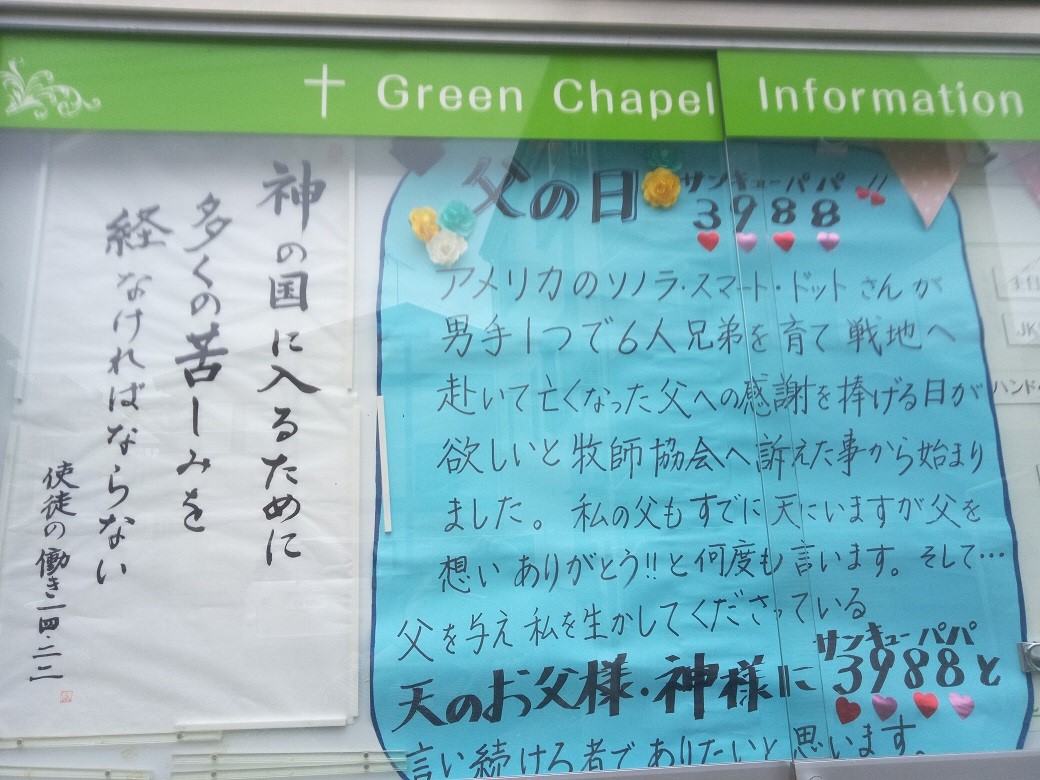 ✝ Green Chapel Information
神の国に入るために
多くの苦しみを
経なければならない
使徒の働き一四・二二
父の日 サンキューパパ!!
3988
アメリカのソノラ・スマート・ドットさんが
男手1つで6人兄弟を育て戦地へ
赴いて亡くなった父への感謝を捧げる日が
欲しいと牧師協会へ訴えた事から始まり
ました。私の父もすでに天にいますが父を
想いありがとう!!と何度も言います。そして…
父を与え私を生かしてくださっている
サンキューパパ
天のお父様・神様に3988と
言い続ける者でありたいと思います。
ハンド